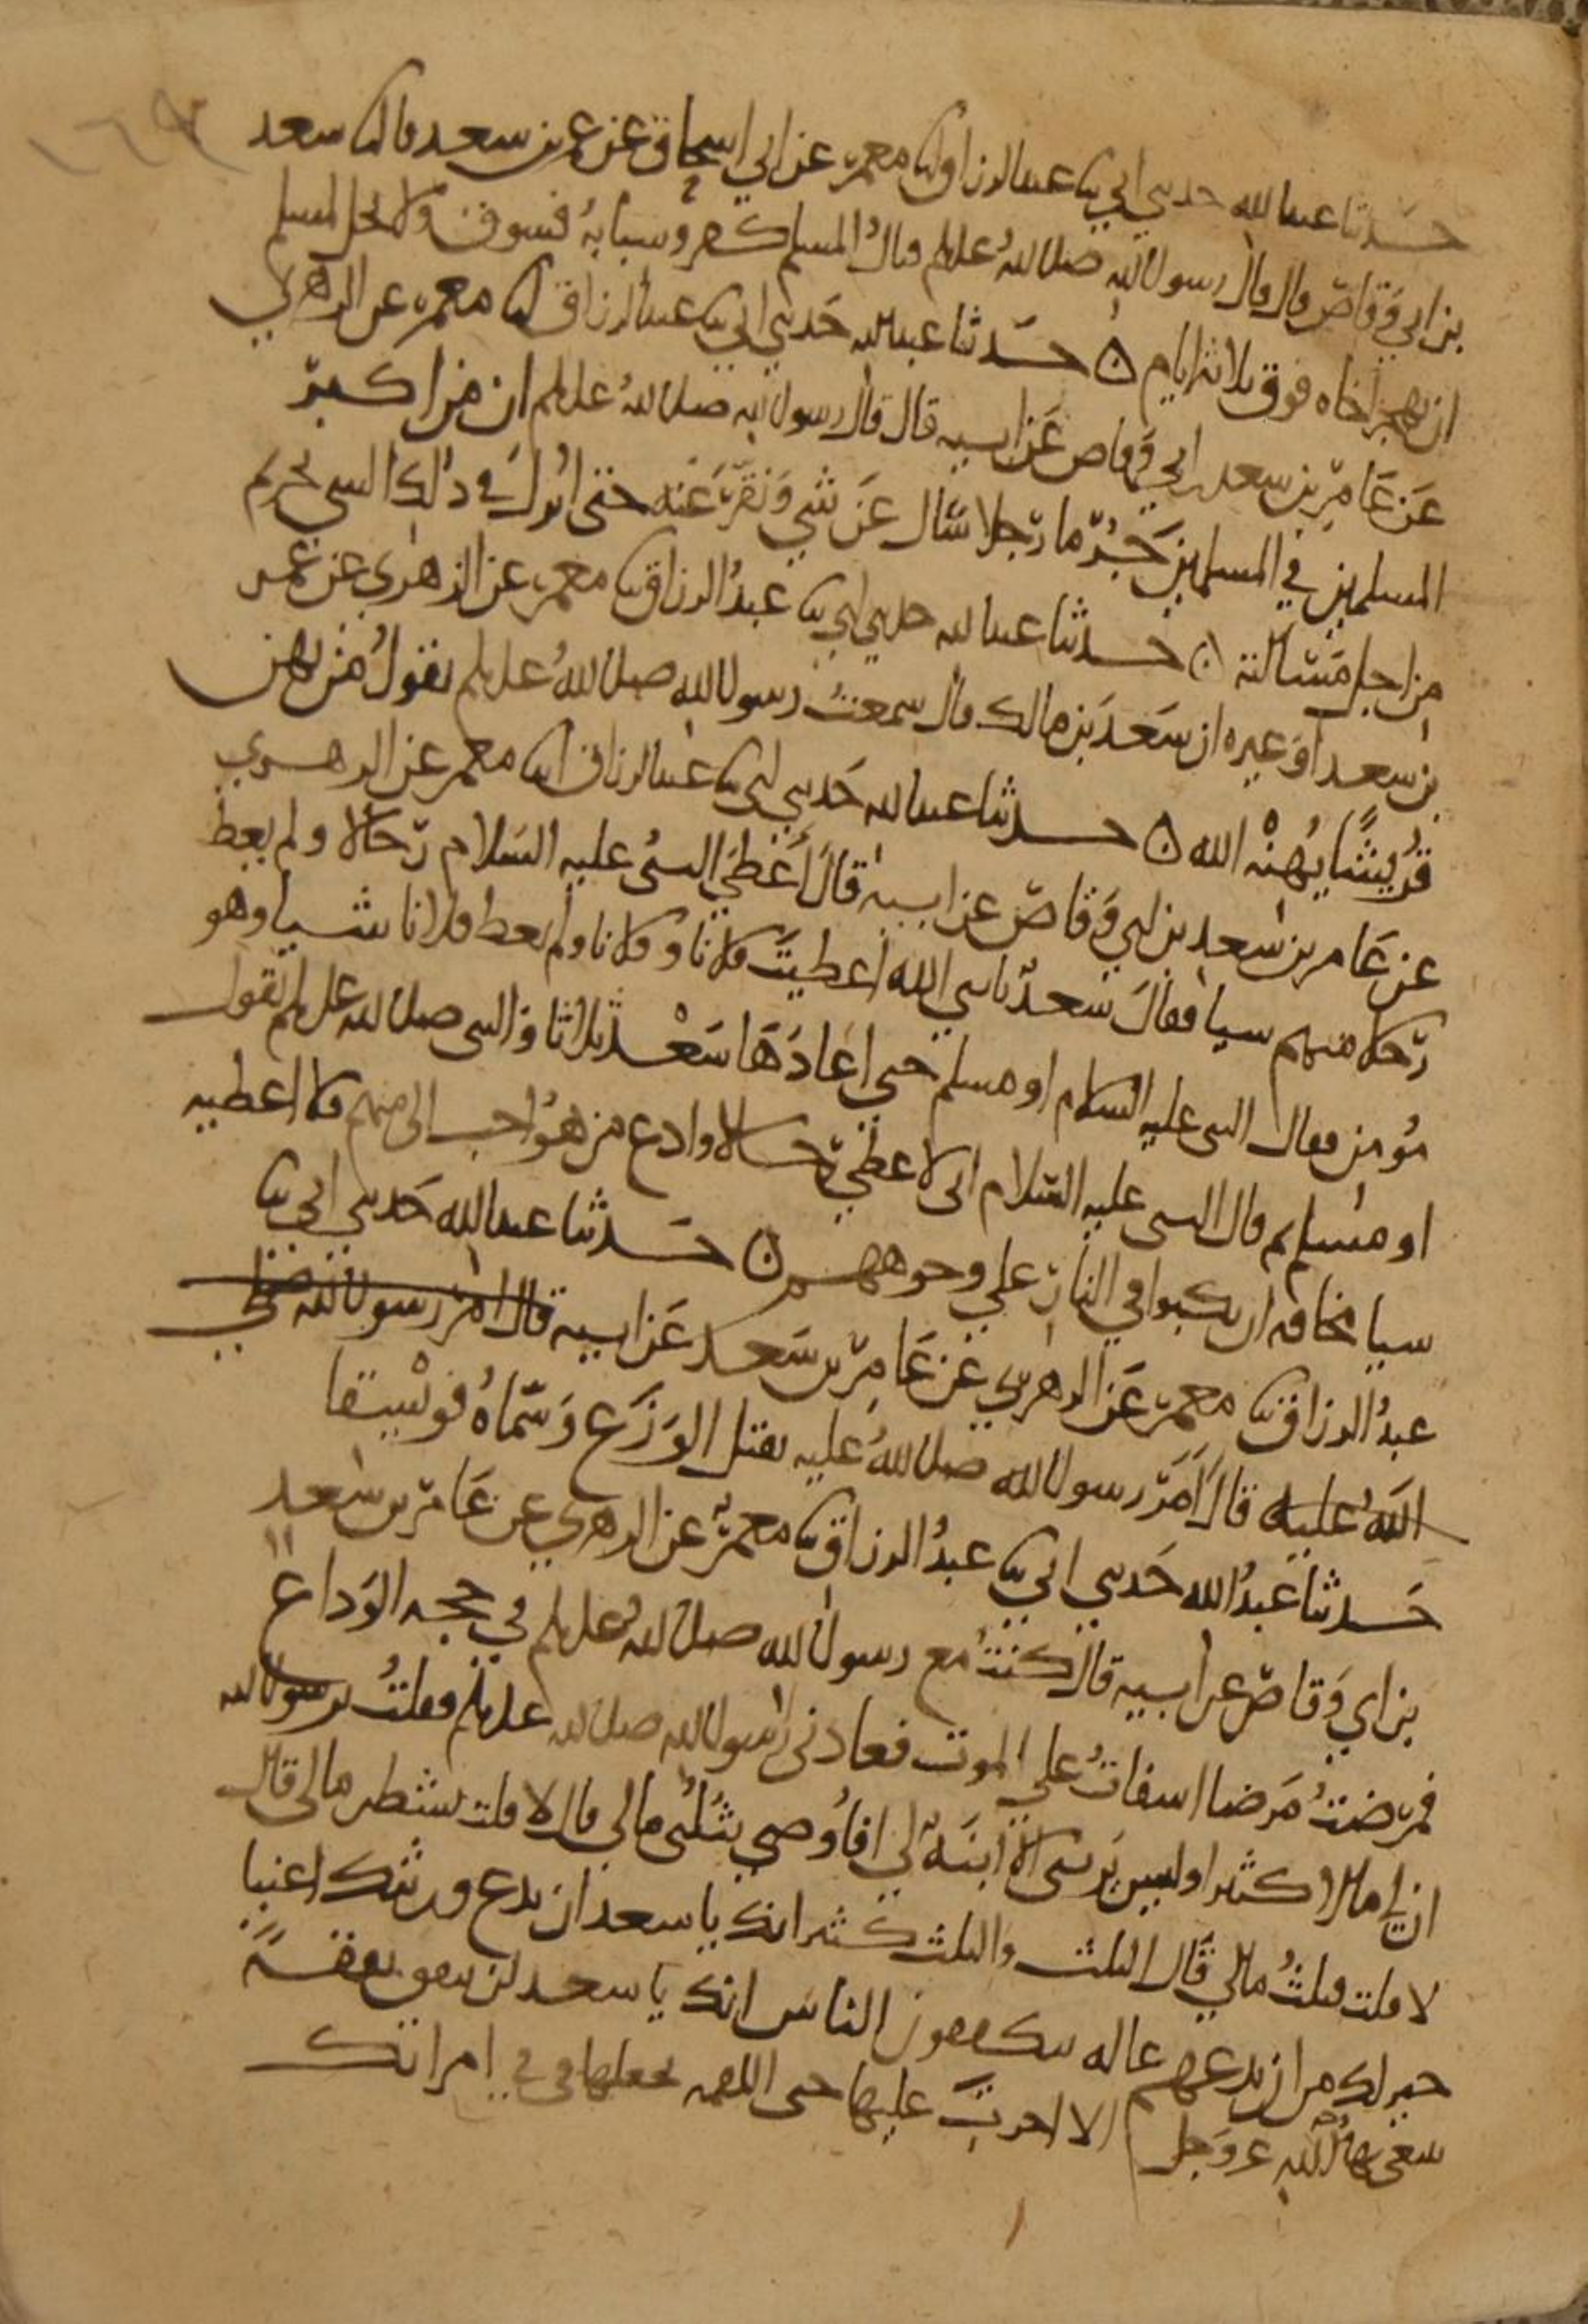 ١٦٩
حدثنا عبد الله حدثني ابي ثنا عبد الرزاق انا معمر عن ابي اسحاق عن عمر بن سعد قال ثنا سعد
بن ابي وقاص قال قال رسول الله صلى الله عليه وسلم قتال المسلم كفر وسبابه فسوق ولا يحل لمسلم
ان يهجر اخاه فوق ثلاثة ايام ن حدثنا عبد الله حدثني ابي ثنا عبد الرزاق انا معمر عن الزهري
عن عامر بن سعد بن ابي وقاص عن ابيه قال قال رسول الله صلى الله عليه وسلم ان من اكبر
المسلمين في المسلمين جرما رجلا سال عن شي ونقر عنه حتى انزل في ذلك الشي تحريم
من اجل مسالته ن حدثنا عبد الله حدثني ابي ثنا عبد الرزاق ثنا معمر عن الزهري عن عمر
بن سعد او غيره ان سعد بن مالك قال سمعت رسول الله صلى الله عليه وسلم يقول من يهن
قريشا يهنه الله ن حدثنا عبد الله حدثني ابي ثنا عبد الرزاق انا معمر عن الزهري
عن عامر بن سعد بن ابي وقاص عن ابيه قال أعطى النبي عليه السلام رجالا ولم يعط
رجلا منهم شيا فقال سعد يا نبي الله اعطيت فلانا وفلانا ولم تعط فلانا شيا وهو
مؤمن فقال النبي عليه السلام او مسلم حتى اعادها سعد ثلاثا والنبي صلى الله عليه وسلم يقول
او مسلم قال النبي عليه السلام اني لاعطي رجالا وادع من هو احب الي منهم فلا اعطيه
شيا مخافة ان يكبوا في النار على وجوههم ن حدثنا عبد الله حدثني ابي ثنا
عبد الرزاق ثنا معمر عن الزهري عن عامر بن سعد عن ابيه قال امر رسول الله صلى
الله عليه قال أمر رسول الله صلى الله عليه بقتل الوزغ وسماه فويسقا
حدثنا عبد الله حدثني ابي ثنا عبد الرزاق ثنا معمر عن الزهري عن عامر بن سعد
بن ابي وقاص عن ابيه قال كنت مع رسول الله صلى الله عليه وسلم في حجة الوداع
فمرضت مرضا اشفيت على الموت فعادني رسول الله صلى الله عليه وسلم فقلت يرسول الله
ان لي مالا كثيرا وليس يرثني الا ابنة لي افأوصي بثلثي مالي قال لا قلت بشطر مالي قال
لا قلت فثلث مالي قال الثلث والثلث كثير انك يا سعد ان تدع ورثتك اغنيا
خير لك من ان تدعهم عالة يتكففون الناس انك يا سعد لن تنفق نفقة
تبتغي بها وجه الله عز وجل الا اجرت عليها حتى اللقمة تجعلها في في امراتك